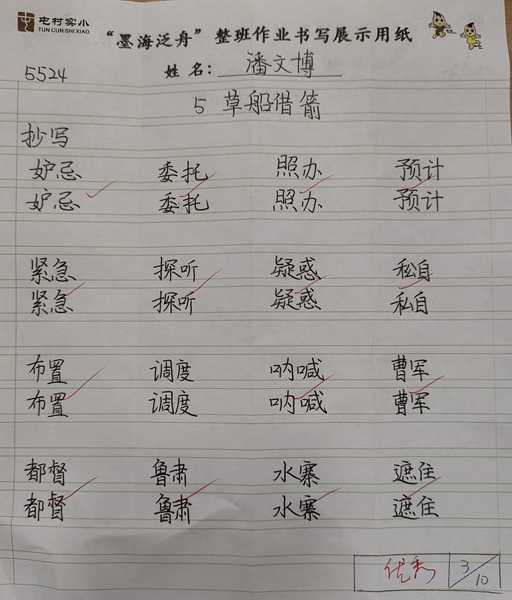 屯村实小
TUN CUN SHI XIAO
“墨海泛舟”整班作业书写展示用纸
5524 姓名:潘文博
5 草船借箭
抄写
妒忌 委托 照办 预计
妒忌 委托 照办 预计
紧急 探听 疑惑 私自
紧急 探听 疑惑 私自
布置 调度 呐喊 曹军
布置 调度 呐喊 曹军
都督 鲁肃 水寨 遮住
都督 鲁肃 水寨 遮住
优秀 3/10